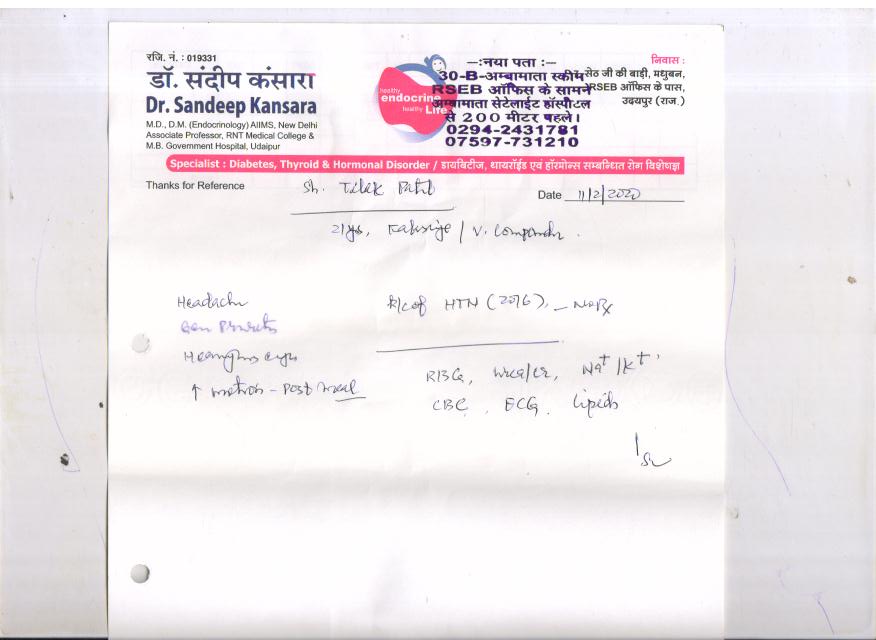 रजि. नं. : 019331
डॉ. संदीप कंसारा
Dr. Sandeep Kansara
M.D., D.M. (Endocrinology) AIIMS, New Delhi
Associate Professor, RNT Medical College &
M.B. Government Hospital, Udaipur
healthy
endocrine
healthy Life
—:नया पता :—
30-B-अम्बामाता स्कीम
RSEB ऑफिस के सामने
अम्बामाता सेटेलाईट हॉस्पीटल
से 200 मीटर पहले।
0294-2431781
07597-731210
निवास :
सेठ जी की बाड़ी, मधुबन,
RSEB ऑफिस के पास,
उदयपुर (राज.)
Specialist : Diabetes, Thyroid & Hormonal Disorder / डायबिटीज, थायरॉईड एवं हॉरमोन्स सम्बन्धित रोग विशेषज्ञ
Thanks for Reference
Sh.
Date 11/2/2020
21 yrs,
Headache
k/c of HTN (2016), – No Rx
↑ motion - Post meal
RBG, urea/cr, Na+/K+,
CBC, ECG, lipids